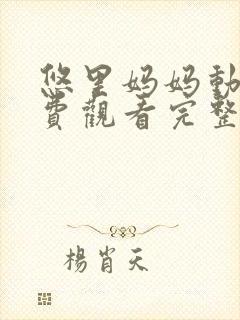 悠里妈妈動
費觀看完整
楊肖天